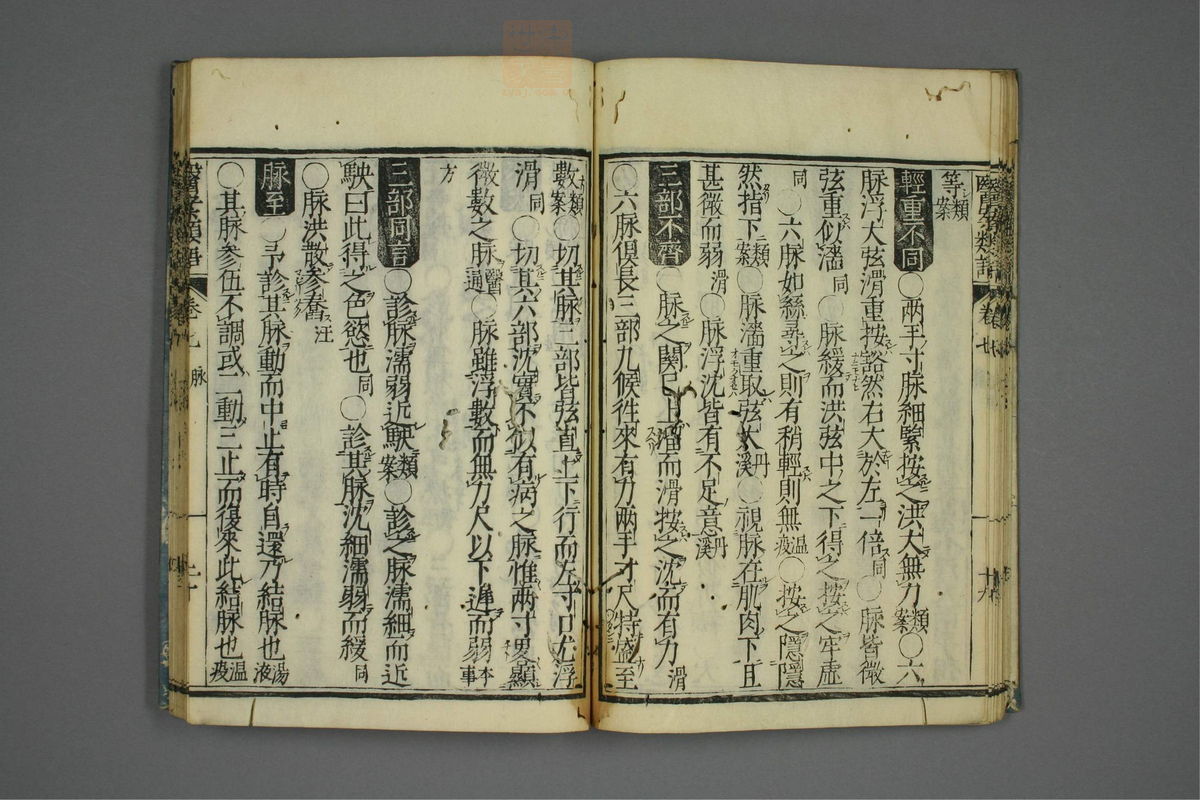 等類案
輕重不同 ○兩手寸脉細緊按之洪大無力類案○六
脉浮大弦滑重按豁然右大於左一倍同○脉皆微
弦重似濇同○脉緩而洪弦中之下得之按之牢虛
同○六脉如絲尋之則有稍輕則無温疫○按之隱隱
然指下類案○脉濇重取弦大丹溪○視脉在肌肉下且
甚微而弱滑○脉浮沈皆有不足意丹溪
三部不齊○脉之関尺上溜而滑按之沈而有力滑
○六脉俱長三部九候徃來有力兩手寸尺特盛至
數類案○切其脉三部皆弦直上下行而左寸口尤浮
滑同○切其六部沈實不似有病之脉惟兩寸畧顯
微數之脉醫通○脉雖浮數而無力尺以下遲而弱本事
方
三部同言○診脉濡弱近駃類案○診之脉濡細而近
駃曰此得之色慾也同○診其脉沈細濡弱而緩同
○脉洪散參舂汪
脉至○予診其脉動而中止有時自還乃結脉也湯液
○其脉參伍不調或二動三止而復來此結脉也温疫
醫學類語 卷七 脉